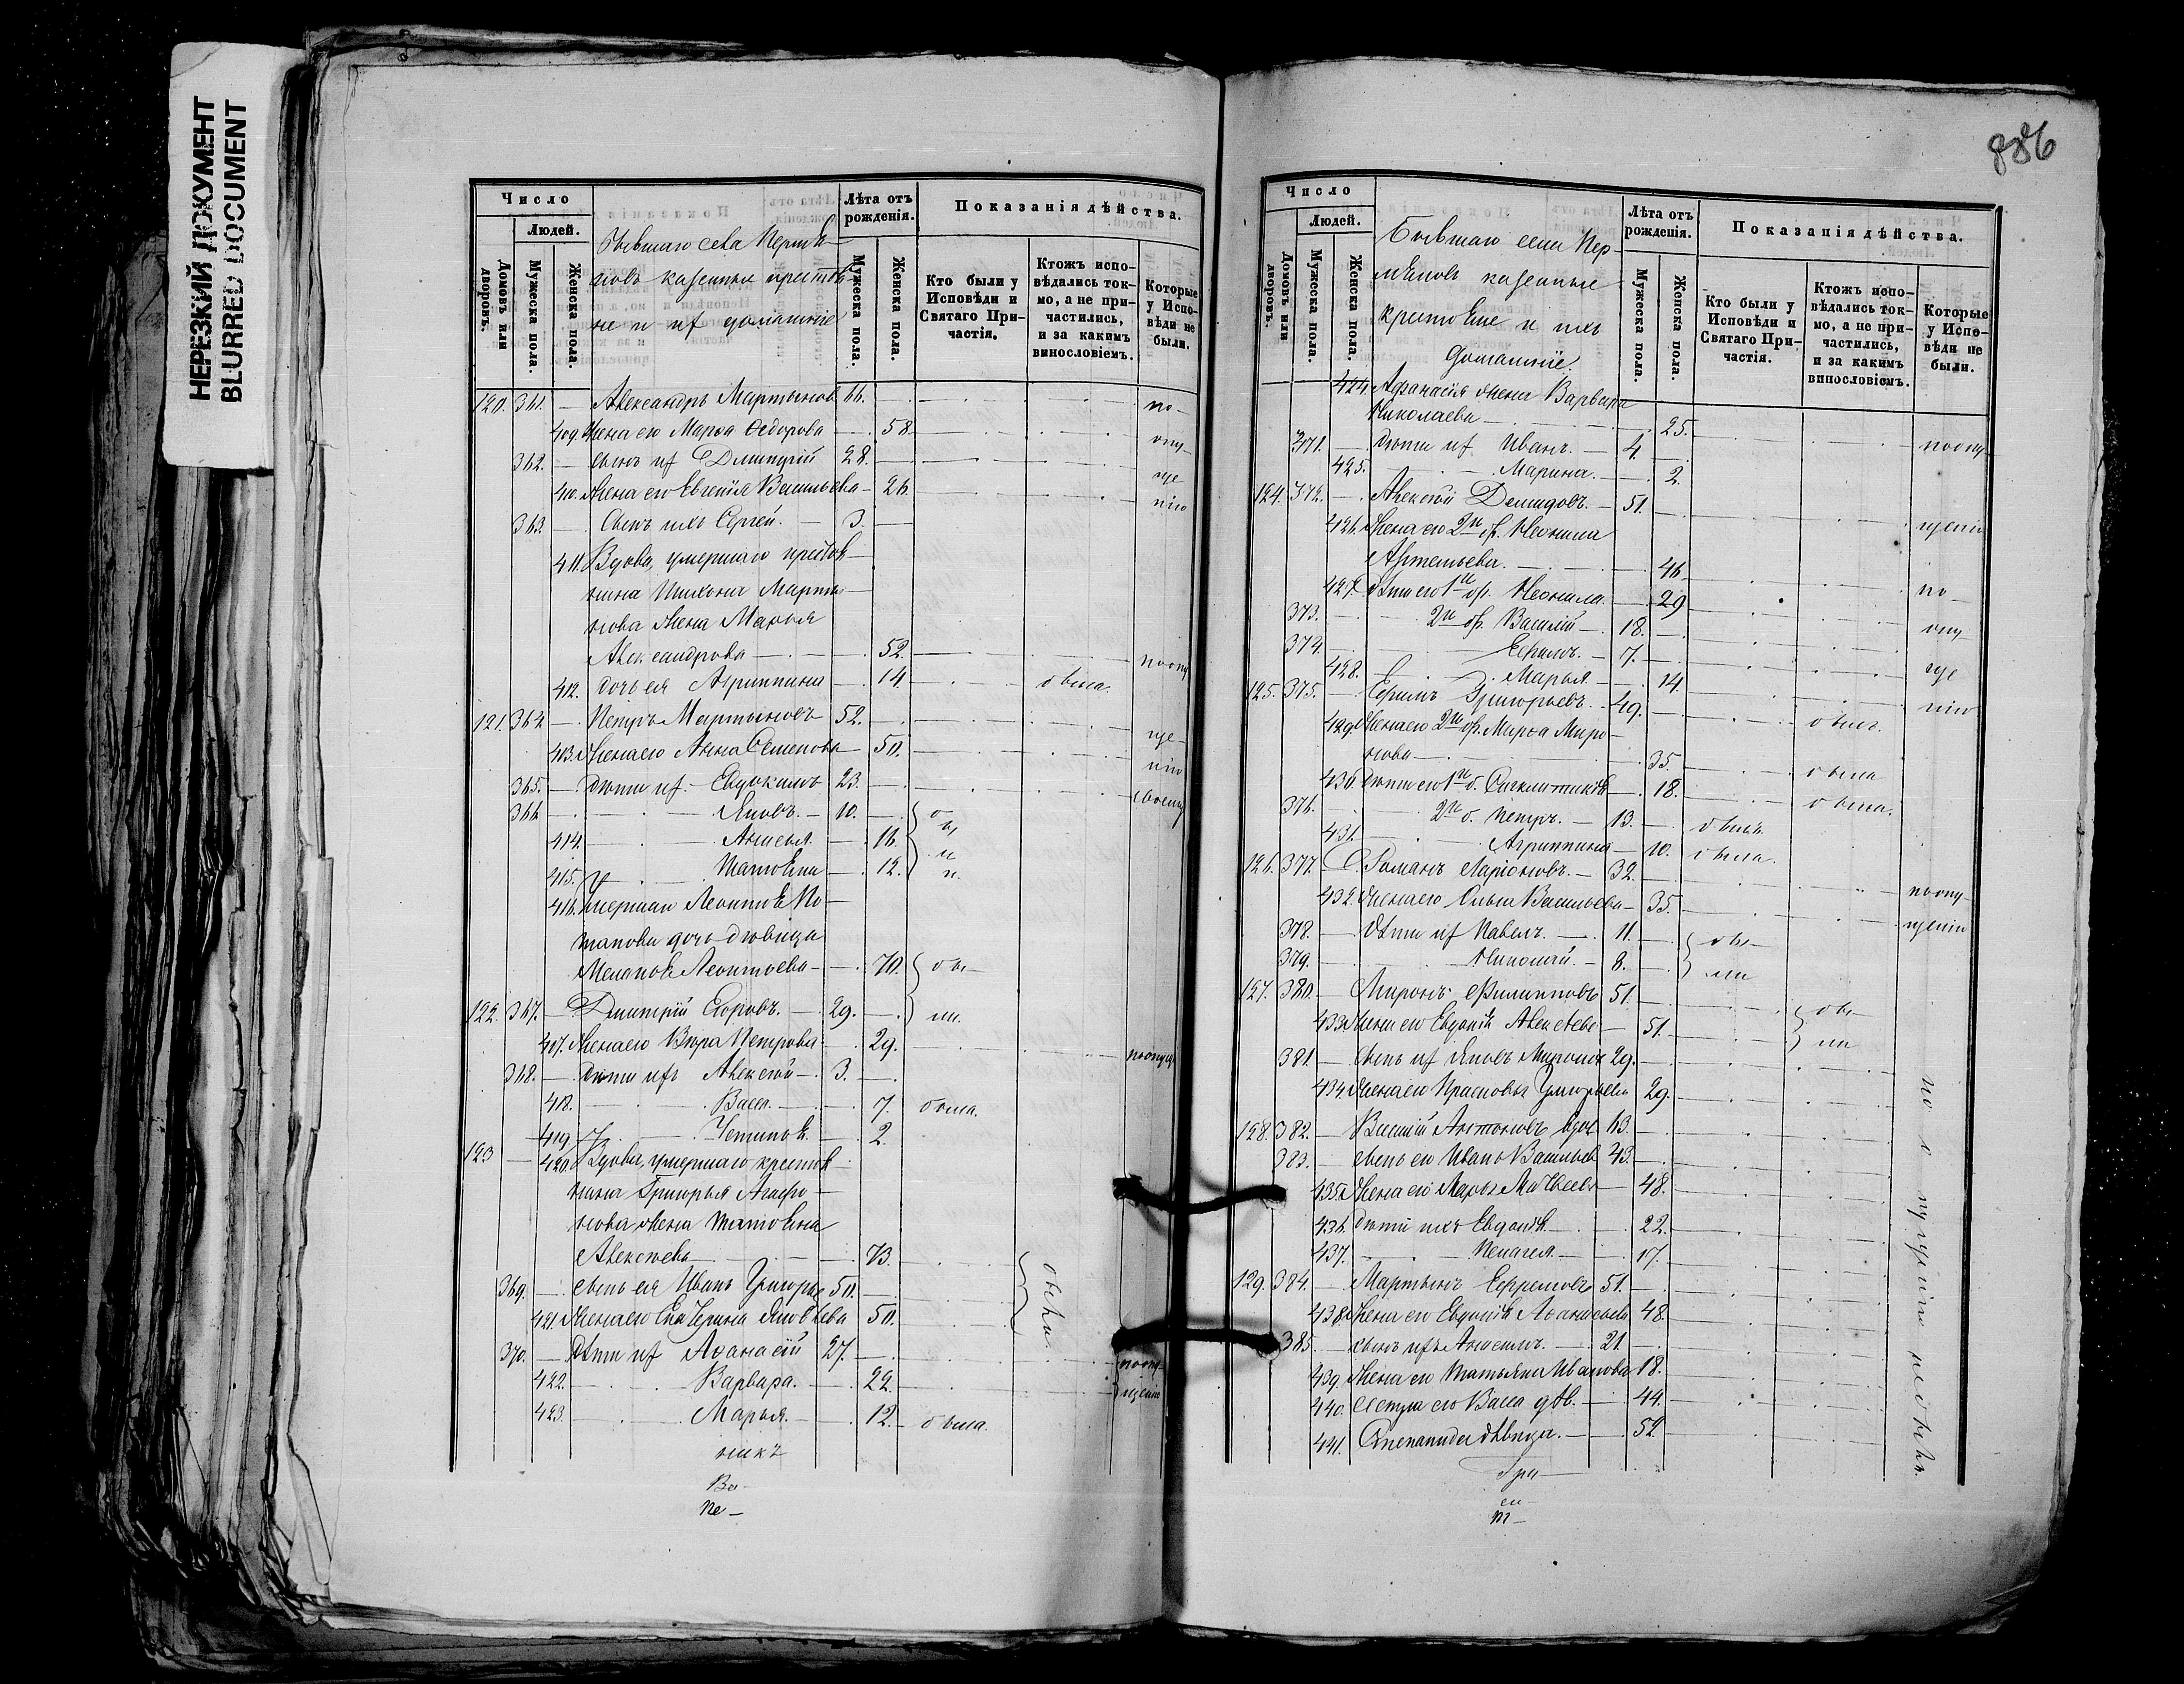 НЕРЕЗКИЙ ДОКУМЕНТ
BLURRED DOCUMENT
886
Число
Людей.
Домовъ или дворовъ.
Мужеска пола.
Женска пола.
Лѣта отъ рожденія.
Мужеска пола.
Женска пола.
Показанія дѣйства.
Кто были у Исповѣди и Святаго Причастія.
Ктожъ исповѣдались токмо, а не причастились, и за какимъ винословіемъ.
Которые у Исповѣди не были.
казенные крестья
не и их домашніе
120. 361. — Александръ Мартыновъ 66. по-
409. Жена его Марѳа Ѳедорова — 58. опу-
362. — сынъ их Дмитрій 28. ще
410. Жена его Евгенія Васильева — 26. нію
363. — Сынъ ихъ Сергей. — 3.
411. Вдова, умершаго крестья-
нина Тихона Марты-
нова жена Марья
Александрова — 52. поопу
412. дочь ея Агриппина — 14. была.
121. 364 — Петръ Мартыновъ 52. ще-
413. Жена его Анна Семенова — 50. нію
365. — дѣти их Евдокимъ 23. своему
366 — Яковъ. — 10. бы
414. Анисья. — 16.
415. Татьяна — 12. ли
416. умершаго Леонтія По-
тапова дочь дѣвица
Меланья Леонтьева — 70. бы-
122. 367. — Дмитрій Егоровъ. — 29. ли.
417. Жена его Вѣра Петрова — 29. поопущ
368. — дѣти ихъ Алексѣй — 3.
418. Васса. — 7. была.
419. Устинья. — 2.
123 — 420. Вдова, умершаго крестья-
нина Григорья Агафо-
нова жена Татьяна
Алексѣева — 73.
369. — сынъ ея Иванъ Григорье 50. были.
421. Жена его Екатерина Яковлева 50.
370. — дѣти их Аѳанасій 27. — поопу-
422. Варвара. — 22. щенію
423. Марья. — 12. была.
нихъ
Ва-
Пе-
Число
Людей.
Домовъ или дворовъ.
Мужеска пола.
Женска пола.
Бывшаго села
казенные
крестьяне и ихъ
домашніе.
Лѣта отъ рожденія.
Мужеска пола.
Женска пола.
Показанія дѣйства.
Кто были у Исповѣди и Святаго Причастія.
Ктожъ исповѣдались токмо, а не причастились, и за какимъ винословіемъ.
Которые у Исповѣди не были.
424. Афанасія жена Варвара
Николаева — 25. поопу-
371. — дѣти их Иванъ. — 4.
425. Марина. — 2.
124. 372. — Алексѣй Демидовъ. — 51. щенію
426. Жена его 2го бр. Неонила
Артемьева. — 46.
427. дѣти его 1го бр. Неонила. — 29 по-
373. 2го бр. Василій — 18. опу
374. Ефимъ. — 7. ще
428. Марья. — 14. нію
125. 375. — Ефимъ Григорьевъ. — 49. былъ.
429. Жена его 2го бр. Марѳа Миро-
нова — 35. была
430. дѣти его 1го б. Синклитикія — 18. была.
376. 2го б. Петръ. — 13. былъ.
431. Агриппина — 10. была.
126. 377. — Романъ Ларіоновъ. — 32. поопу-
432. Жена его Ольга Васильева — 35. щенію
378. — дѣти их Павелъ. — 11. бы-
379. Николай. — 8. ли
127. 380. — Миронъ Филипповъ 51. бы-
433. Жена его Евдокія Алексѣева — 51. ли
381. — сынъ их Яковъ Мироновъ 29.
434. Жена его Прасковья Григорьева 29.
128. 382. — Василій Антоновъ вдов 63.
383. — сынъ его Иванъ Васильев 43.
435. Жена его Марѳа Матвеева — 48.
436. дѣти ихъ Евдокія — 22.
437. Пелагея. — 17.
129. 384. — Мартынъ Ефремовъ 51.
438. Жена его Евдокія Аѳанасьева 48.
385. — сынъ ихъ Анисимъ. — 21.
439. Жена его Татьяна Иванова 18.
440. Сестра его Васса дѣв. — 44.
441. Степанида дѣвица. — 52.
по опущенію не были.